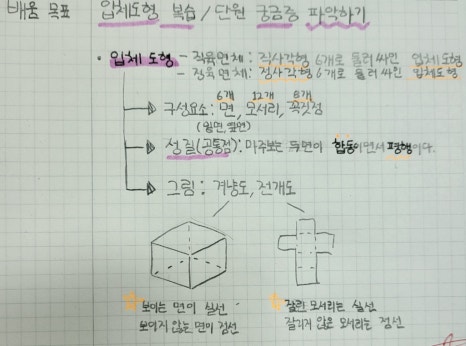 배움 목표 입체도형 복습 / 단원 궁금증 파악하기
· 입체 도형 - 직육면체 : 직사각형 6개로 둘러싸인 입체도형
- 정육면체 : 정사각형 6개로 둘러싸인 입체도형
6개 12개 8개
구성요소 : 면, 모서리, 꼭짓점
(밑면, 옆면)
성질(공통점) : 마주보는 두면이 합동이면서 평행이다.
그림 : 겨냥도, 전개도
보이는 면이 실선
보이지 않는 면이 점선
잘린 모서리는 실선
잘리지 않은 모서리는 점선